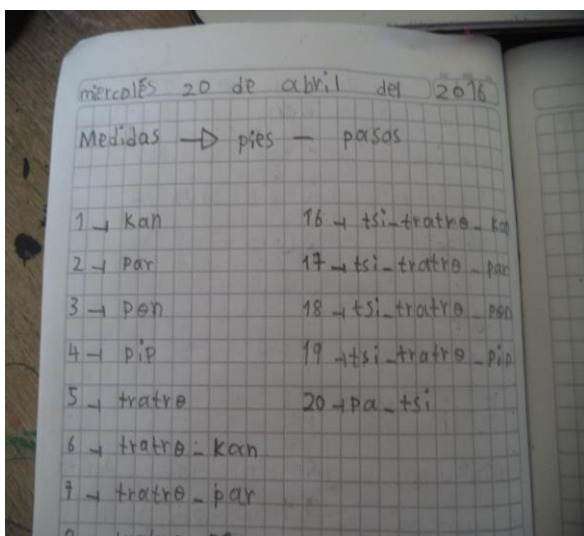 miercoles 20 de abril del 2016
Medidas → pies — pasos
1 → Kan
2 → par
3 → pɵn
4 → pip
5 → tratrɵ
6 → tratrɵ-kan
7 → tratrɵ-par
16 → tsi-tratrɵ-kan
17 → tsi-tratrɵ-par
18 → tsi-tratrɵ-pɵn
19 → tsi-tratrɵ-pip
20 → pa-tsi